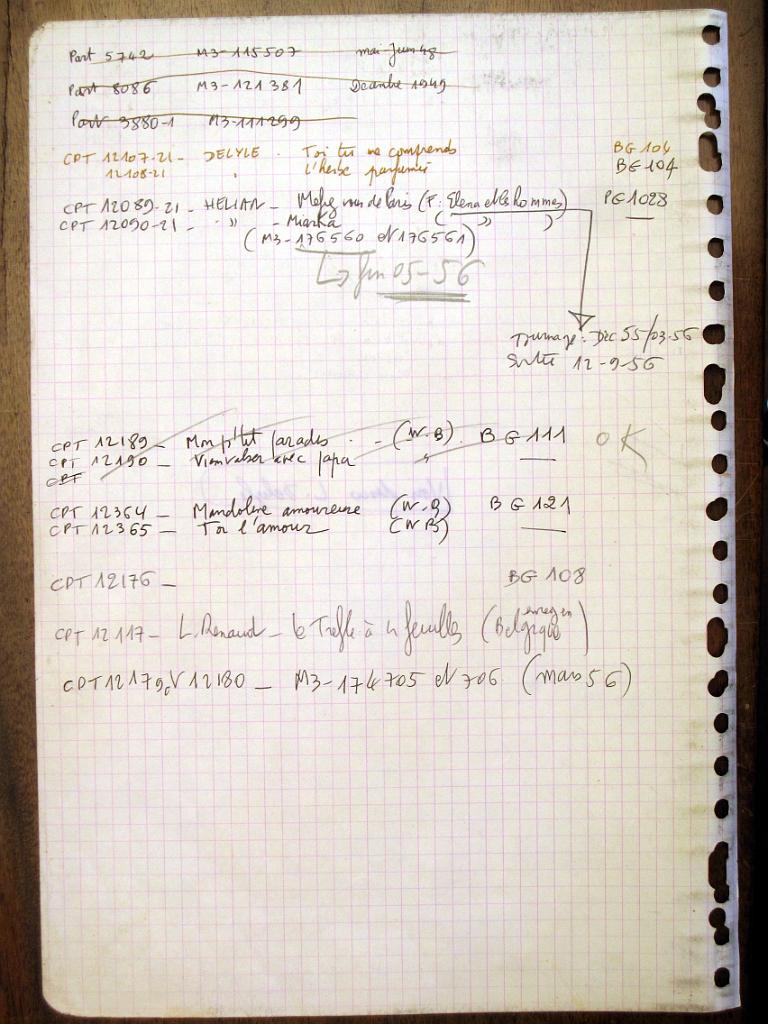 Part 5742 M3-115507 mai-Juin 48
Part 8086 M3-121381 Décembre 1949
Part 3880-1 M3-111299
CPT 12107-21 - DELYLE - Toi tu me comprends BG 104
12108-21 " L'herbe parfumée BG 104
CPT 12089-21 - HELIAN - de Paris (F: Elena et les hommes) PG 1028
CPT 12090-21 - " - Miarka ( " )
(M3-176560 et 176561)
↳ fin 05-56
Tournage: Déc 55/03-56
Sortie 12-9-56
CPT 12189 - Mon p'tit paradis - (W.B). BG 111 OK
CPT 12190 - Viens valser avec papa "
CPT
CPT 12364 - Mandoline amoureuse (W.B) BG 121
CPT 12365 - Toi l'amour (WB)
CPT 12176 - BG 108
CPT 12117 - L. Renaud - le Trefle à 4 feuilles (enreg en Belgique)
CPT 12179 et 12180 - M3-174705 et 706 (mars 56)